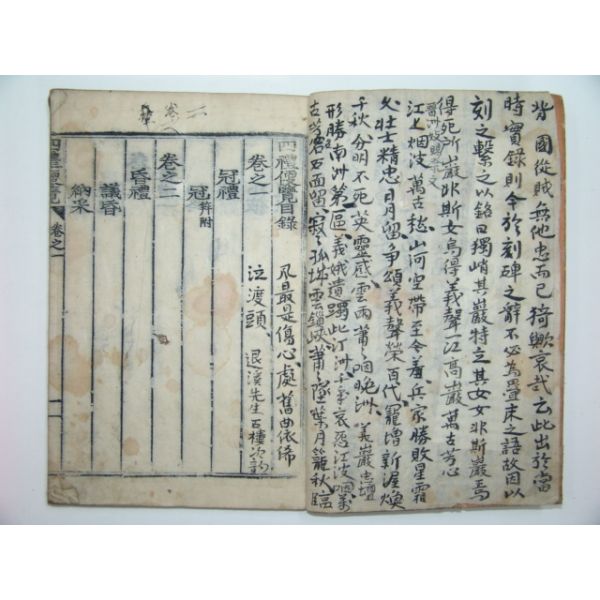 背國從賊無他忠而已猗歟哀哉云此出於當
時實錄則今於刻碑之辭不必為疊床之語故因以
刻之繫之以銘曰獨峭其巖特立其女女非斯巖焉
得死所巖非斯女烏得義聲一江高巖萬古芳心
江上烟波萬古愁山河空帶至今羞兵家勝敗星霜
久壯士精忠日月留爭頌義聲榮百代寵增新渥煥
千秋分明不死英靈感雲雨蕭蕭咽晚洲 義巖忠壇
形勝南州第一區義娥遺躅此汀洲千年哀怨江波咽萬
古芳名石面留寂寂孤城雲鎖峽蕭蕭墜葉月籠秋臨
四禮便覽目錄
卷之一
冠禮
冠 笄附
卷之二
昏禮
議昏
納采
風最是傷心處舊曲依俙
泣渡頭 退溪先生
四禮便覽 卷之一